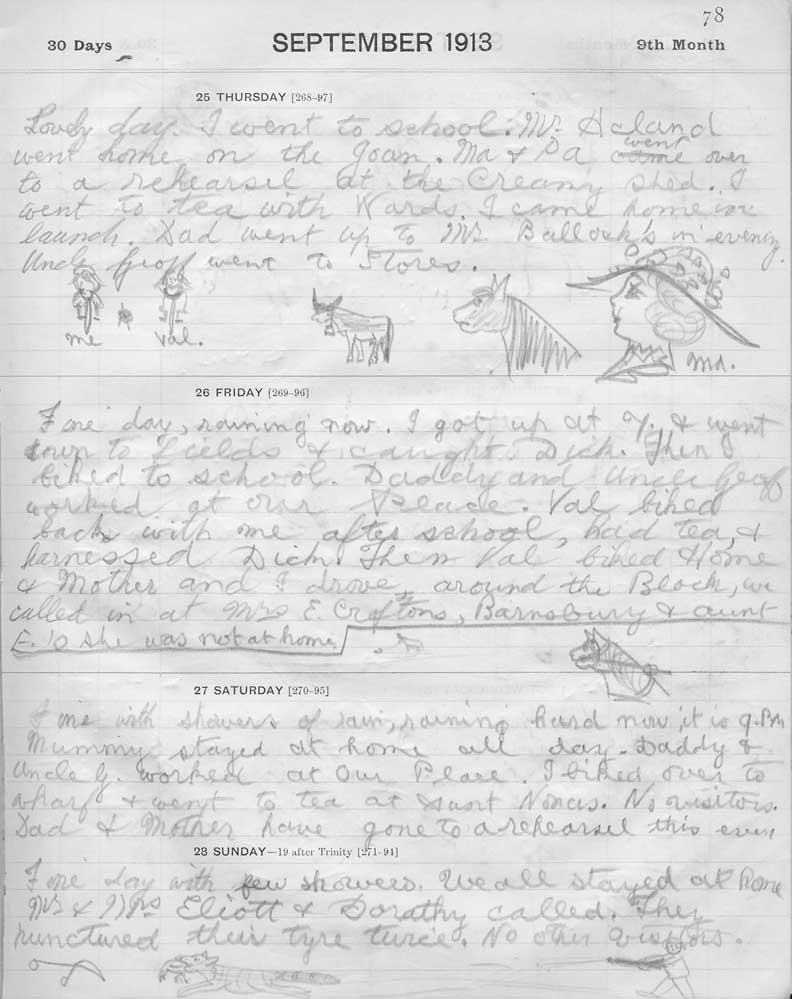 78
30 Days SEPTEMBER 1913 9th Month
25 THURSDAY [268-97]
Lovely day. I went to school. Mr. Acland
went home on the Joan. Ma & Pa went over
to a rehearsil at the Creamy shed. I
went to tea with Wards. I came home in
launch. Dad went up to Mr. Bullock's in evening.
Uncle Geoff went to Stores.
me val. Ma.
26 FRIDAY [269-96]
Fine day, raining now. I got up at 7. & went
down to Fields & caught Dick. Then I
biked to school. Daddy and Uncle Geof
worked at Our Place. Val biked
back with me after school, had tea, &
harnessed Dick. Then Val biked Home
& Mother and I drove around the Block, we
called in at Mrs E. Croftons, Barnsbury & aunt
E.'s she was not at home.
27 SATURDAY [270-95]
Fine with showers of rain, raining hard now, it is 9.Pm
Mummy stayed at home all day. Daddy &
Uncle G. worked at Our Place. I biked over to
wharf & went to tea at Aunt Nonas. No visitors.
Dad & Mother have gone to a rehearsil this even
28 SUNDAY—19 after Trinity [271-94]
Fine day with few showers. We all stayed at home
Mr & Mrs Eliott & Dorathy called. They
punctured their tyre twice. No other visitors.